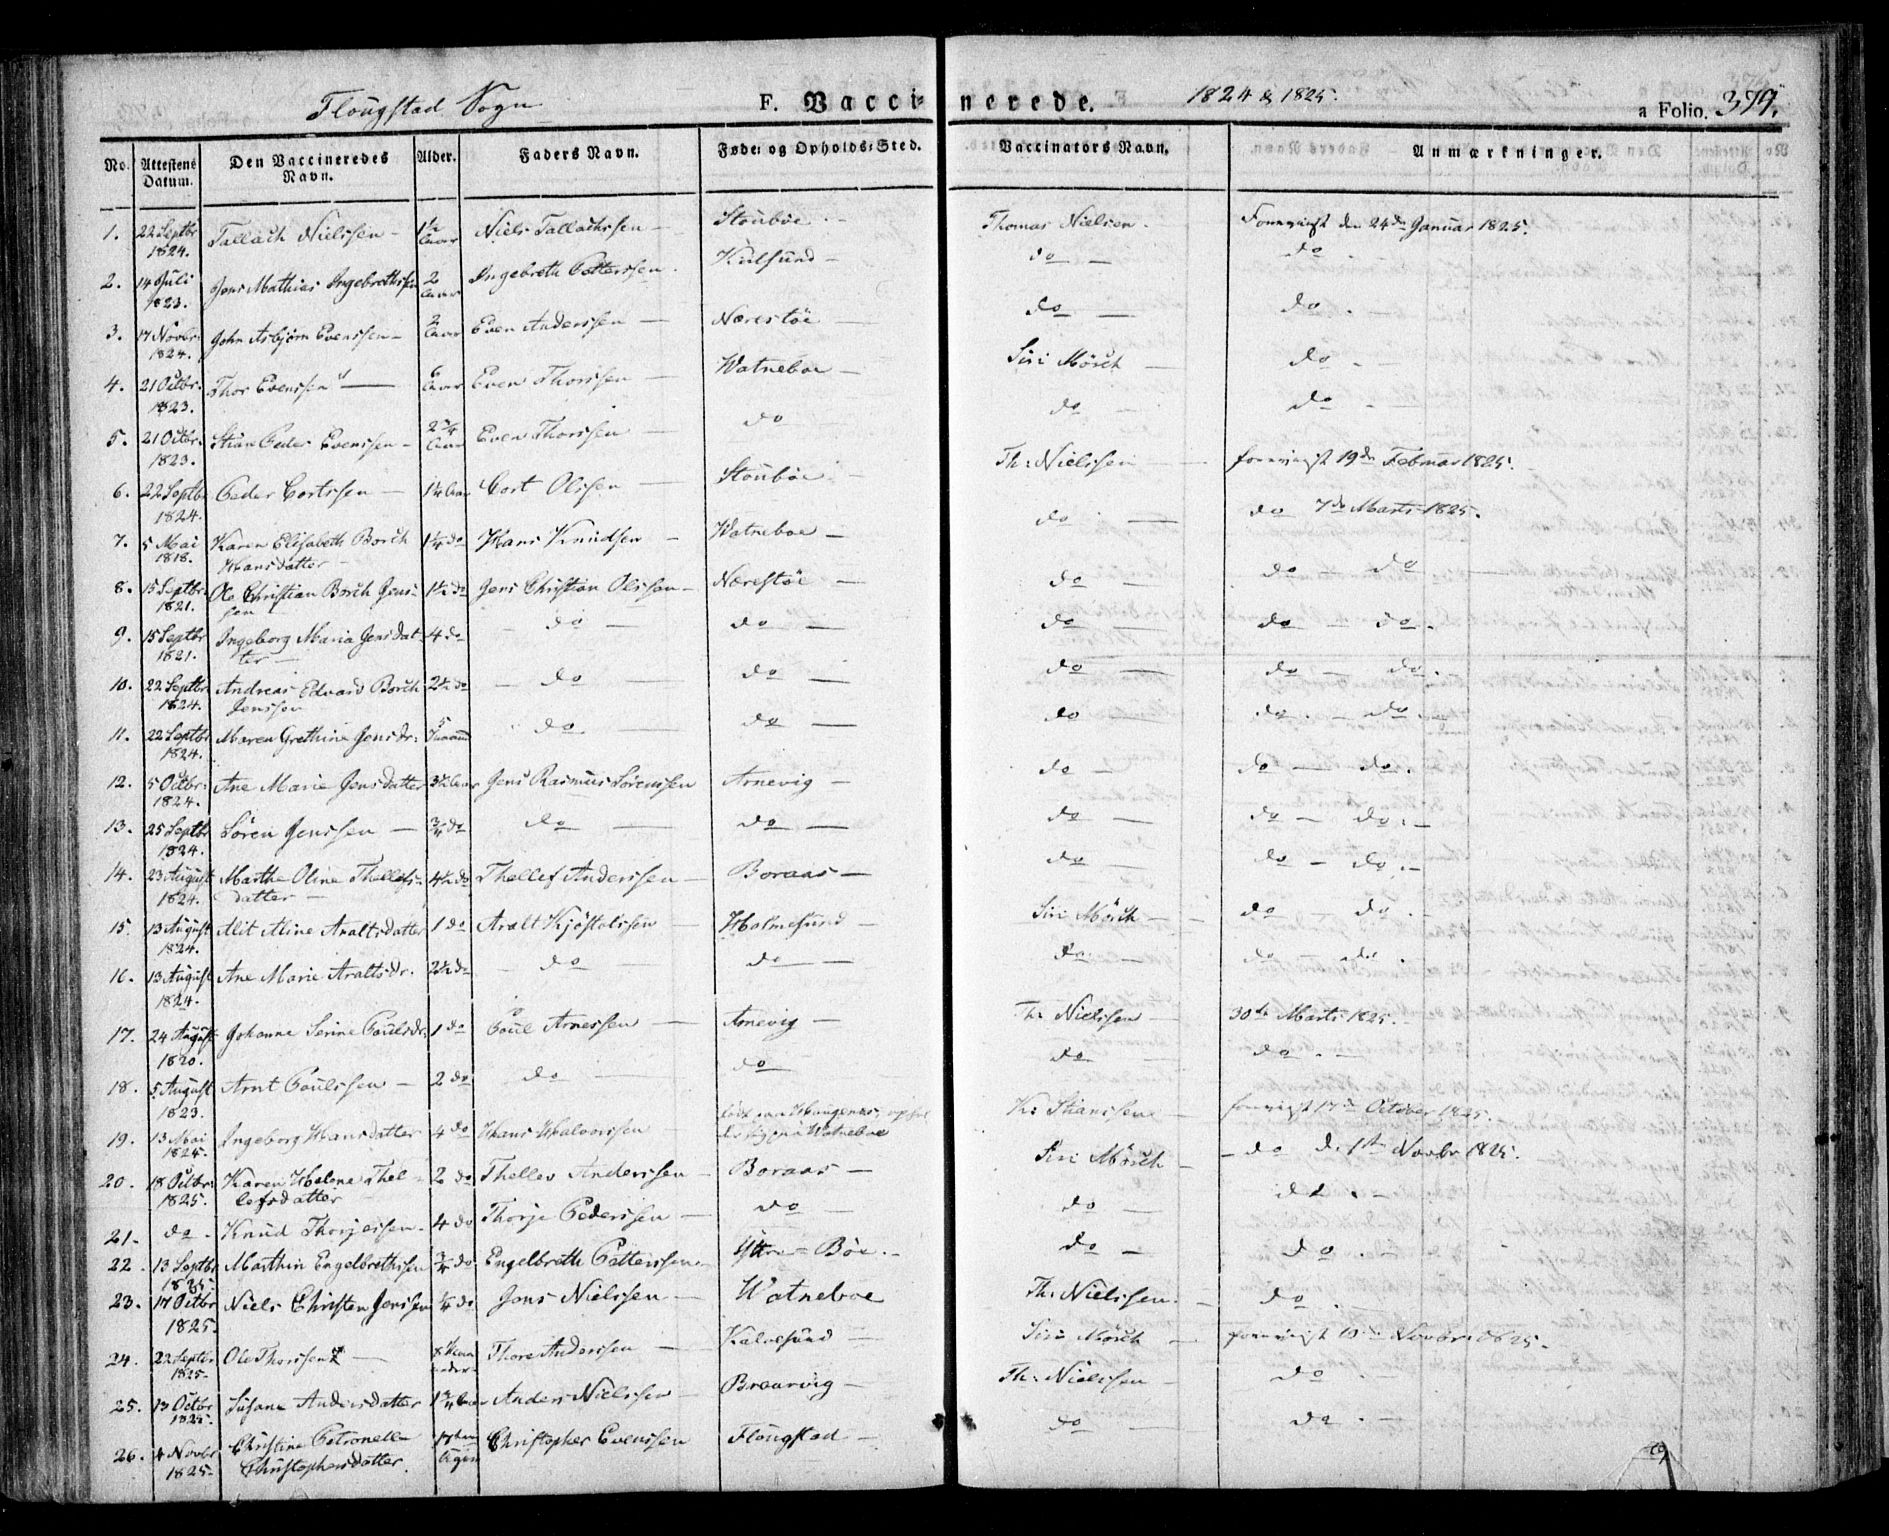 Flougstad Sogn
F. Vaccinerede.
1824 & 1825.
a Folio. 379.
No. Attestens Datum. Den Vaccineredes Navn. Alder. Faders Navn. Føde- og Opholds-Sted. Vaccinators Navn. Anmærkninger.
1. 22 Septbr 1824. Tallach Nielssen 1½ Aar Niels Tallachssen Stoubøe Thomas Nielsen den 24de Januar 1825.
2. 14 Juli 1823. Jens Mathias Ingebrethssen 2 Aar Ingebreth Petterssen Kalfsund do do
3. 17 Novbr. 1824. John Asbjørn Evenssen 2 Aar Even Anderssen Nærestøe do do
4. 21 Octbr. 1823. Thor Evenssen Aar Even Thorssen Watneboe Siri Mørch do
5. 21 Octbr. 1823. Stian Peder Evenssen 2¾ Aar Even Thorssen do do do
6. 22 Septbr 1824. Peder Cortssen 1¼ Aar Cort Olssen Stoubøe Th: Nielssen 19de Februar 1825.
7. 5 Mai 1818. Karen Elisabeth Borch Hansdatter 1¼ do Hans Knudsen Watneboe do do 7de Marts 1825.
8. 15 Septbr. 1821. Ole Christian Borch Jenssen 1½ do Jens Christian Olssen Nærestøe do do do
9. 15 Septbr 1821. Ingeborg Maria Jensdatter 4 do do do do do do
10. 22 Septbr 1824. Andreas Edvard Borch Jenssen 2½ do do do do do do
11. 22 Septbr 1824. Maren Grethine Jensdr. do do do do do
12. 5 Octbr. 1824. Ane Marie Jensdatter 3½ Aar Jens Rasmus Sørenssen Arnevig do do do
13. 25 Septbr 1824. Søren Jenssen ¾ do do do do do do
14. 23 August 1824. Marthe Oline Thellefsdatter 4½ do Thellef Anderssen Boraas do do do
15. 13 August 1824. Alit Aline Araltsdatter 1 do Aralt Kjøstelssen Holmesund Siri Mørch do do
16. 13 August 1824. Ane Marie Araltsdr. 2½ do do do do do do
17. 24 August 1820. Johanne Serine Poulsdr. 1 do Poul Arnessen Arnevig Th: Nielssen 30te Marts 1825.
18. 5 August 1823. Arnt Poulssen 2 do do do do do
19. 13 Mai 1825. Ingeborg Hansdatter 4 do Hans Halvorssen Watneboe K: Stianssen 17de October 1825.
20. 18 Octbr. 1825. Karen Helene Thellefsdatter 2 do Thellev Anderssen Boraas Siri Mørch do d. 1ste Novbr 1825.
21. do Knud Thorjessen 4 do Thorje Pederssen do do do
22. 13 Septbr 1825. Marthin Engelbrethssen ¾ do Engelbreth Petterssen Yttre-Bøe do do
23. 17 Octbr 1825. Niels Christen Jenssen ¼ do Jens Nielssen Watneboe Th: Nielssen do
24. 22 Septbr 1825. Ole Thorssen Thore Anderssen Kalvesund Siri Mørch 10de Novbr 1825.
25. 13 Octbr 1825. Susane Andersdatter 1¾ Aar Anders Nielssen Braarvig Th: Nielssen do
26. 4 Novbr 1825. Christine Petronelle Christophersdatter Christopher Evenssen Flougstad do do